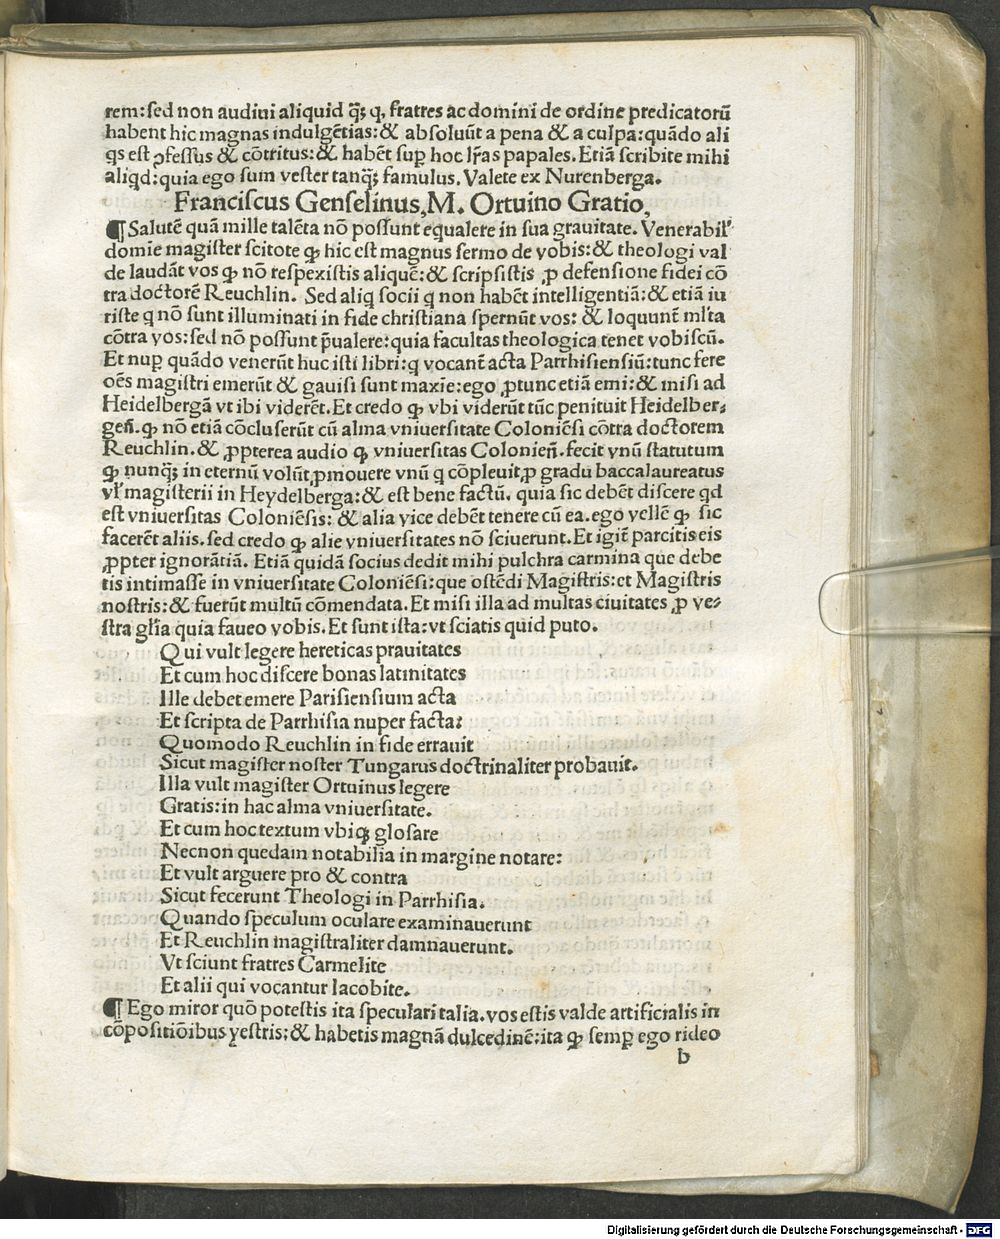 rem:ſed non audiui aliquid qͣ; q, fratres ac domini de ordine predicatorū
habent hic magnas indulgētias:& abſoluūt a pena & a culpa:quādo ali
qs eſt ꝯfeſſus & cōtritus:& habēt ſuꝑ hoc lr̄as papales. Etiā ſcribite mihi
aliqd:quia ego ſum veſter tanqͣ; famulus. Valete ex Nurenberga.
Franciſcus Genſelinus, M. Ortuino Gratio,
¶ Salutē quā mille talēta nō poſſunt equalere in ſua grauitate. Venerabil'
domīe magiſter ſcitote ꝙ hic eſt magnus ſermo de vobis:& theologi val
de laudāt vos ꝙ nō reſpexiſtis aliquē:& ſcripſiſtis ꝓ defenſione fidei cō
tra doctorē Reuchlin. Sed aliq ſocii q non habēt intelligentiā:& etiā iu
riſte q nō ſunt illuminati in fide chriſtiana ſpernūt vos: & loquunt̄ ml̄ta
cōtra vos:ſed nō poſſunt p̄ualere:quia facultas theologica tenet vobiſcū.
Et nuꝑ quādo venerūt huc iſti libri:q vocant̄ acta Parrhiſienſiū:tunc fere
oēs magiſtri emerūt & gauiſi ſunt maxīe:ego ꝓtunc etiā emi:& miſi ad
Heidelbergā vt ibi viderēt. Et credo ꝙ vbi viderūt tūc penituit Heidelber⸗
geñ. ꝙ nō etiā cōcluſerūt cū alma vniuerſitate Coloniēſi cōtra doctorem
Reuchlin. & ꝓpterea audio ꝙ vniuerſitas Colonieñ. fecit vnū ſtatutum
ꝙ nunqͣ; in eternū volūt ꝓmouere vnū q cōpleuit ꝓ gradu baccalaureatus
vl' magiſterii in Heydelberga:& eſt bene factū. quia ſic debēt diſcere qd
eſt vniuerſitas Coloniēſis: & alia vice debēt tenere cū ea. ego vellē ꝙ ſic
facerēt aliis. ſed credo ꝙ alie vniuerſitates nō ſciuerunt. Et igit̄ parcitis eis
ꝓpter ignorātiā. Etiā quidā ſocius dedit mihi pulchra carmina que debe
tis intimaſſe in vniuerſitate Coloniēſi:que oſtēdi Magiſtris:et Magiſtris
noſtris:& fuerūt multū cōmendata. Et miſi illa ad multas ciuitates ꝓ ve⸗
ſtra gl̄ia quia faueo vobis. Et ſunt iſta:vt ſciatis quid puto.
Qui vult legere hereticas prauitates
Et cum hoc diſcere bonas latinitates
Ille debet emere Pariſienſium acta
Et ſcripta de Parrhiſia nuper facta:
Quomodo Reuchlin in fide errauit
Sicut magiſter noſter Tungarus doctrinaliter probauit.
Illa vult magiſter Ortuinus legere
Gratis:in hac alma vniuerſitate.
Et cum hoc textum vbiqꝫ gloſare
Necnon quedam notabilia in margine notare:
Et vult arguere pro & contra
Sicut fecerunt Theologi in Parrhiſia.
Quando ſpeculum oculare examinauerunt
Et Reuchlin magiſtraliter damnauerunt.
Vt ſciunt fratres Carmelite
Et alii qui vocantur Iacobite.
¶ Ego miror quō poteſtis ita ſpeculari talia. vos eſtis valde artificialis in
cōpoſitiōibus veſtris:& habetis magnā dulcedinē:ita ꝙ ſemꝑ ego rideo
b
Digitalisierung gefördert durch die Deutsche Forschungsgemeinschaft - DFG